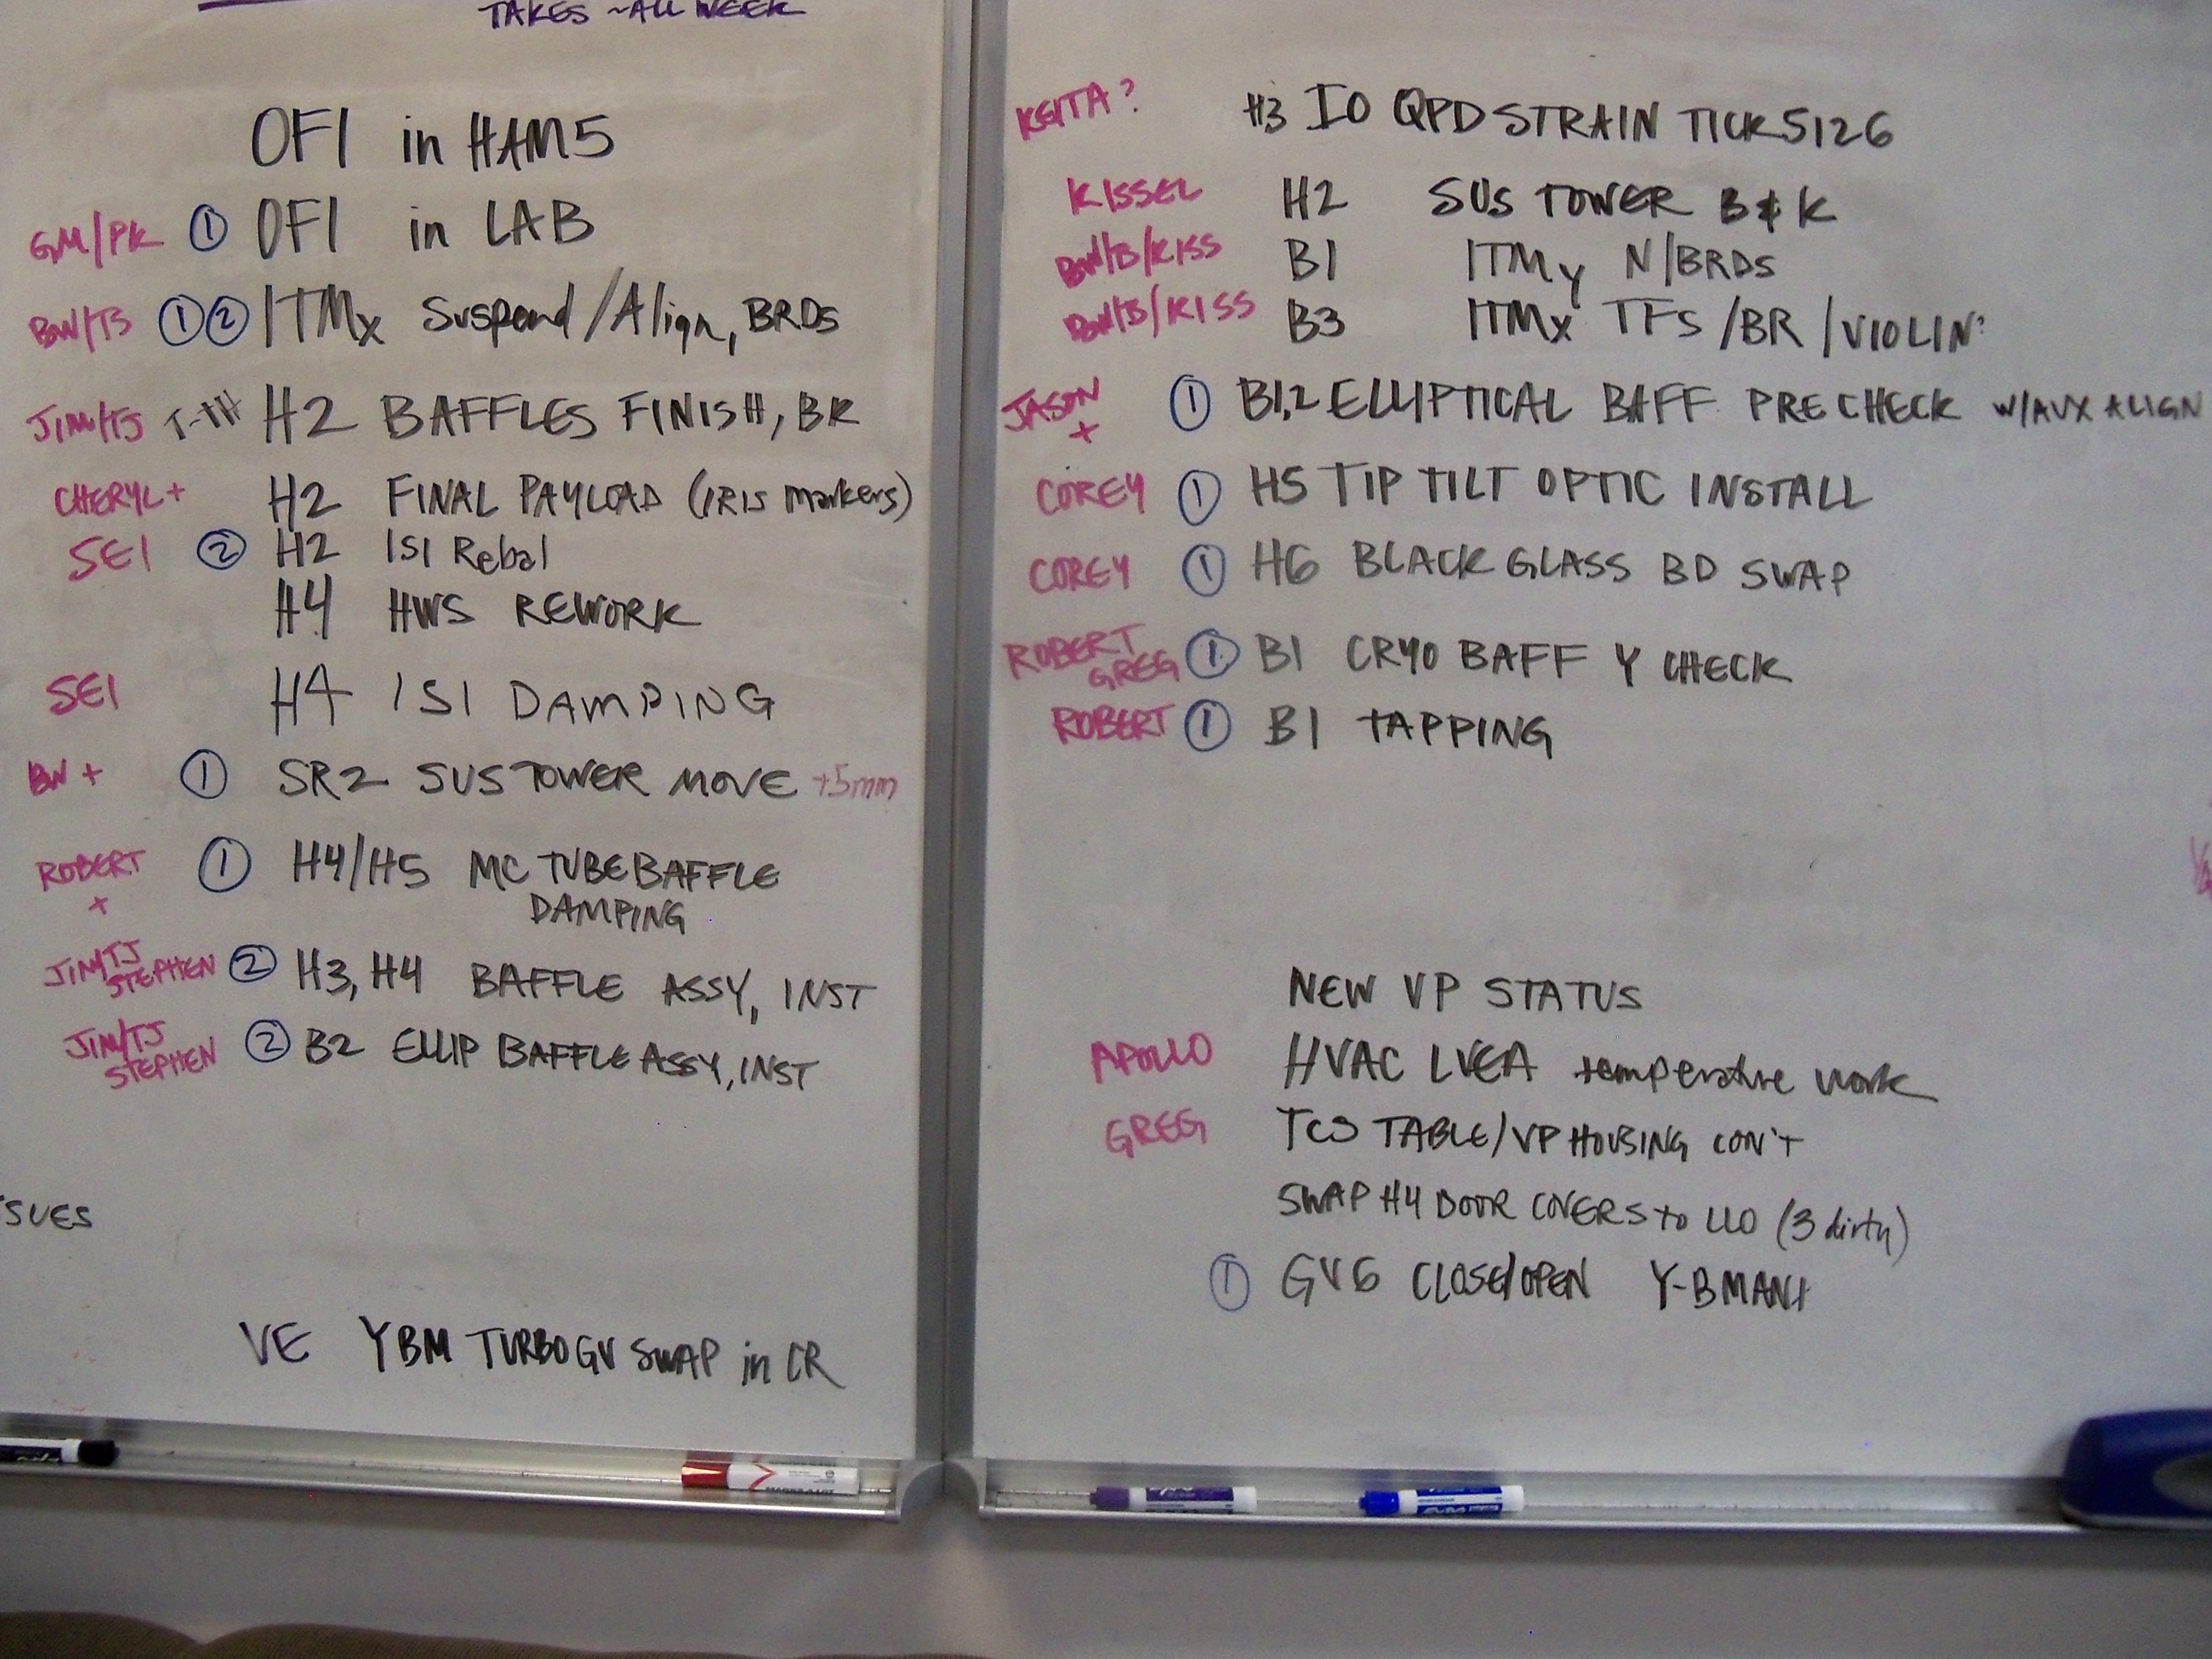 TAKES ~ALL WEEK
OFI in HAM5
GM/PK ① OFI in LAB
BW/TS ①② ITMx Suspend/Align, BRDS
JIM/TJ H2 BAFFLES FINISH, BK
CHERYL+ H2 FINAL PAYLOAD (IRIS markers)
SEI ② H2 ISI Rebal
H4 HWS REWORK
SEI H4 ISI DAMPING
BW + ① SR2 SUS TOWER MOVE +5mm
ROBERT + ① H4/H5 MC TUBE BAFFLE
DAMPING
JIM/TJ STEPHEN ② H3, H4 BAFFLE ASSY, INST
JIM/TJ STEPHEN ② B2 ELLIP BAFFLE ASSY, INST
SUES
VE YBM TURBO GV SWAP in CR
KEITA? H3 IO QPD STRAIN TICK 5126
KISSEL H2 SUS TOWER B&K
BW/B/KISS B1 ITMy N/BRDS
BW/B/KISS B3 ITMx TFS /BR /VIOLIN?
JASON + ① B1,2 ELLIPTICAL BAFF PRECHECK W/AUX ALIGN
COREY ① H5 TIP TILT OPTIC INSTALL
COREY ① H6 BLACK GLASS BD SWAP
ROBERT GREG ① B1 CRYO BAFF Y CHECK
ROBERT ① B1 TAPPING
NEW VP STATUS
APOLLO HVAC LVEA temperature work
GREG TCS TABLE/VP HOUSING CON'T
SWAP H4 DOOR COVERS to LLO (3 dirty)
① GV6 CLOSE/OPEN Y-BMANI